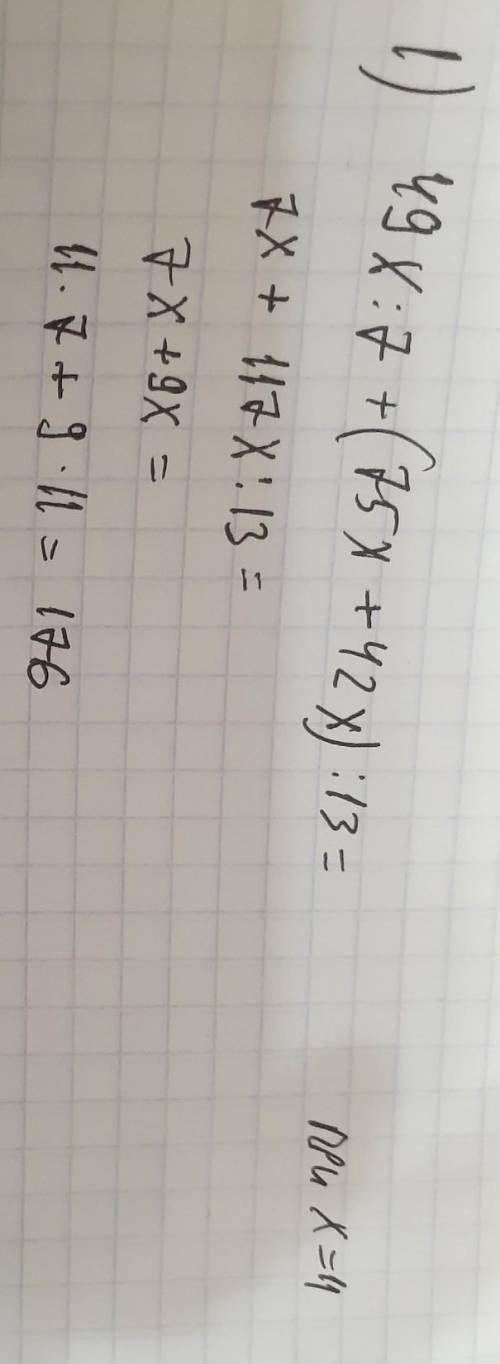 1) 49x:7 + (75x + 42x):13 = при x=11
7x + 117x:13 =
7x + 9x =
11·7 + 9·11 = 176